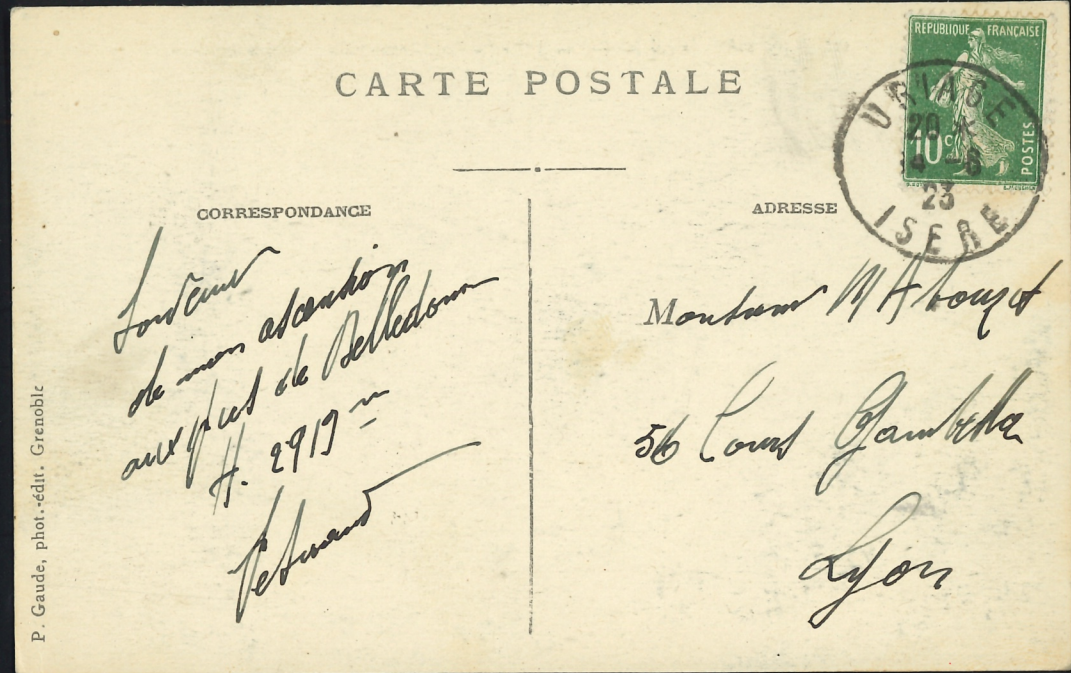 CARTE POSTALE
REPUBLIQUE FRANÇAISE
10c
POSTES
URIAGE
20
4 - 6
23
ISERE
CORRESPONDANCE
Souvenir
de mon ascention
aux pics de Belledonne
H. 2919 m
ADRESSE
Monsieur M
56 Cours Gambetta
Lyon
P. Gaude, phot.-édit. Grenoble